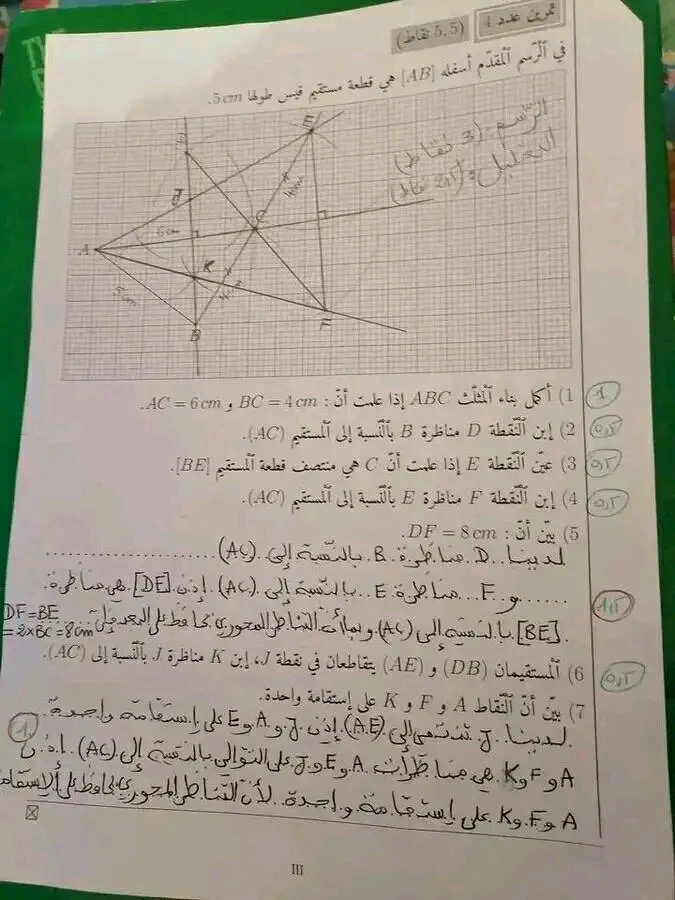 تمرين عدد 4 (5,5 نقاط)
في الرّسم المقدّم أسفله [AB] هي قطعة مستقيم قيس طولها 5 cm.
الرّسم: (3 نقاط)
التعليل: (2,5 نقاط)
D
E
J
C
4cm
6cm
A
K
4cm
5cm
F
B
1) أكمل بناء المثلّث ABC إذا علمت أنّ : BC = 4 cm و AC = 6 cm. 1
2) إبن النّقطة D مناظرة B بالنّسبة إلى المستقيم (AC). 0,5
3) عيّن النّقطة E إذا علمت أنّ C هي منتصف قطعة المستقيم [BE]. 0,5
4) إبن النّقطة F مناظرة E بالنّسبة إلى المستقيم (AC). 0,5
5) بيّن أنّ : DF = 8 cm.
لدينا D مناظرة B بالنسبة إلى (AC)
و F مناظرة E بالنسبة إلى (AC) إذن [DE] هي مناظرة
[BE] بالنسبة إلى (AC) و بما أن التناظر المحوري يحافظ على البعد فإن DF = BE
= 2×BC = 8cm
1,5
6) المستقيمان (DB) و (AE) يتقاطعان في نقطة J، إبن K مناظرة J بالنّسبة إلى (AC). 0,5
7) بيّن أنّ النّقاط A و F و K على إستقامة واحدة.
لدينا J تنتمي إلى (AE) إذن J و A و E على إستقامة واحدة
1
A و F و K هي مناظرات A و E و J على التوالي بالنسبة إلى (AC) إذن
A و F و K على إستقامة واحدة لأن التناظر المحوري يحافظ على الإستقامة
III